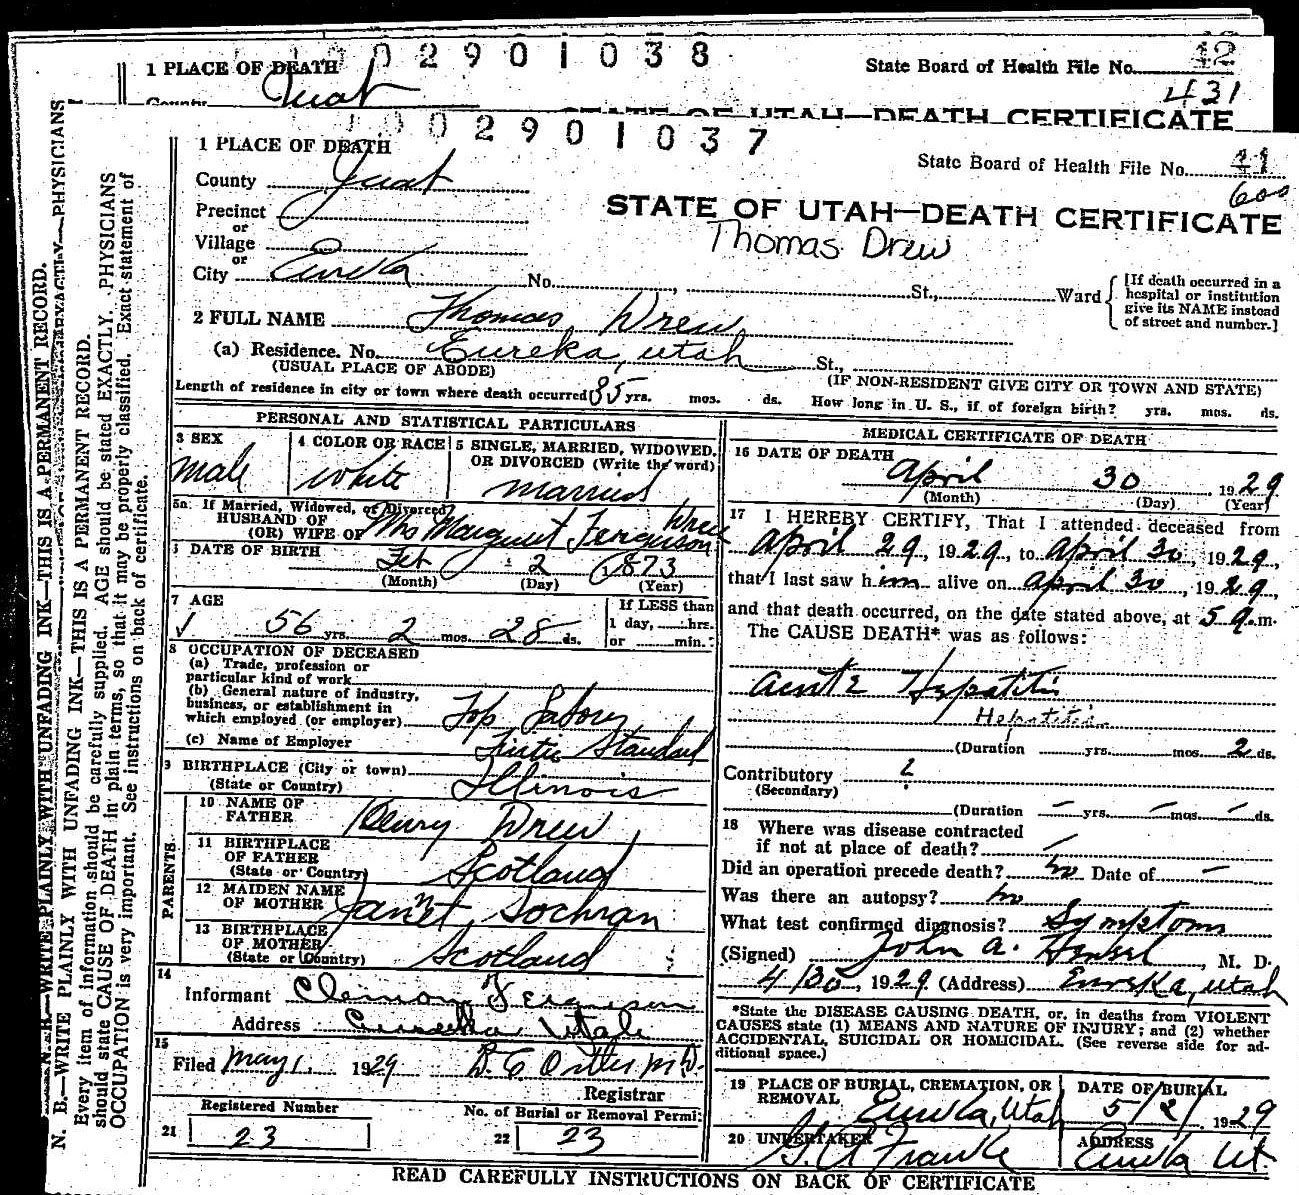 02901038
1 PLACE OF DEATH
State Board of Health File No. 42
County Juab
431
STATE OF UTAH—DEATH CERTIFICATE
02901037
1 PLACE OF DEATH
State Board of Health File No. 41
600
County Juab
STATE OF UTAH—DEATH CERTIFICATE
Precinct
or
Thomas Drew
Village
or
City Eureka No. , St., Ward
[If death occurred in a
hospital or institution
give its NAME instead
of street and number.]
2 FULL NAME Thomas Drew
(a) Residence. No. Eureka, Utah St.,
(USUAL PLACE OF ABODE) (IF NON-RESIDENT GIVE CITY OR TOWN AND STATE)
Length of residence in city or town where death occurred 35 yrs. mos. ds. How long in U. S., if of foreign birth? yrs. mos. ds.
PERSONAL AND STATISTICAL PARTICULARS
3 SEX
male
4 COLOR OR RACE
white
5 SINGLE, MARRIED, WIDOWED,
OR DIVORCED (Write the word)
married
5a If Married, Widowed, or Divorced
HUSBAND OF
(OR) WIFE OF Mrs Margaret Ferguson Drew
DATE OF BIRTH
Feb 2 1873
(Month) (Day) (Year)
7 AGE
56 yrs. 2 mos. 28 ds.
If LESS than
1 day, hrs.
or min.
8 OCCUPATION OF DECEASED
(a) Trade, profession or
particular kind of work
(b) General nature of industry,
business, or establishment in
which employed (or employer) Top Labor
(c) Name of Employer Tintic Standard
9 BIRTHPLACE (City or town)
(State or Country) Illinois
PARENTS.
10 NAME OF
FATHER Henry Drew
11 BIRTHPLACE
OF FATHER
(State or Country) Scotland
12 MAIDEN NAME
OF MOTHER Janet Lochran
13 BIRTHPLACE
OF MOTHER
(State or Country) Scotland
14
Informant Ferguson
Address Eureka Utah
15
Filed May 1. 1929
Registrar
Registered Number
21 23
No. of Burial or Removal Permit
22 23
MEDICAL CERTIFICATE OF DEATH
16 DATE OF DEATH
April 30 1929
(Month) (Day) (Year)
17 I HEREBY CERTIFY, That I attended deceased from
April 29, 1929, to April 30, 1929,
that I last saw him alive on April 30, 1929,
and that death occurred, on the date stated above, at 5 a.m.
The CAUSE DEATH* was as follows:
Acute Hepatitis
Hepatitis
(Duration yrs. mos. 2 ds.
Contributory ?
(Secondary)
(Duration — yrs. — mos. — ds.
18 Where was disease contracted
if not at place of death?
Did an operation precede death? no Date of —
Was there an autopsy? no
What test confirmed diagnosis? Symptoms
(Signed) John A. , M. D.
4/30, 1929 (Address) Eureka, Utah
*State the DISEASE CAUSING DEATH, or, in deaths from VIOLENT
CAUSES state (1) MEANS AND NATURE OF INJURY; and (2) whether
ACCIDENTAL, SUICIDAL OR HOMICIDAL. (See reverse side for ad-
ditional space.)
19 PLACE OF BURIAL, CREMATION, OR
REMOVAL Eureka, Utah
DATE OF BURIAL
5/2/, 1929
20 UNDERTAKER
G. A. Franke
ADDRESS
Eureka Ut.
READ CAREFULLY INSTRUCTIONS ON BACK OF CERTIFICATE
N. B.—WRITE PLAINLY WITH UNFADING INK—THIS IS A PERMANENT RECORD.
Every item of information should be carefully supplied. AGE should be stated EXACTLY. PHYSICIANS
should state CAUSE OF DEATH in plain terms, so that it may be properly classified. Exact statement of
OCCUPATION is very important. See instructions on back of certificate.
WRITE PLAINLY WITH UNFADING INK—THIS IS A PERMANENT RECORD.
EXACTLY. PHYSICIANS